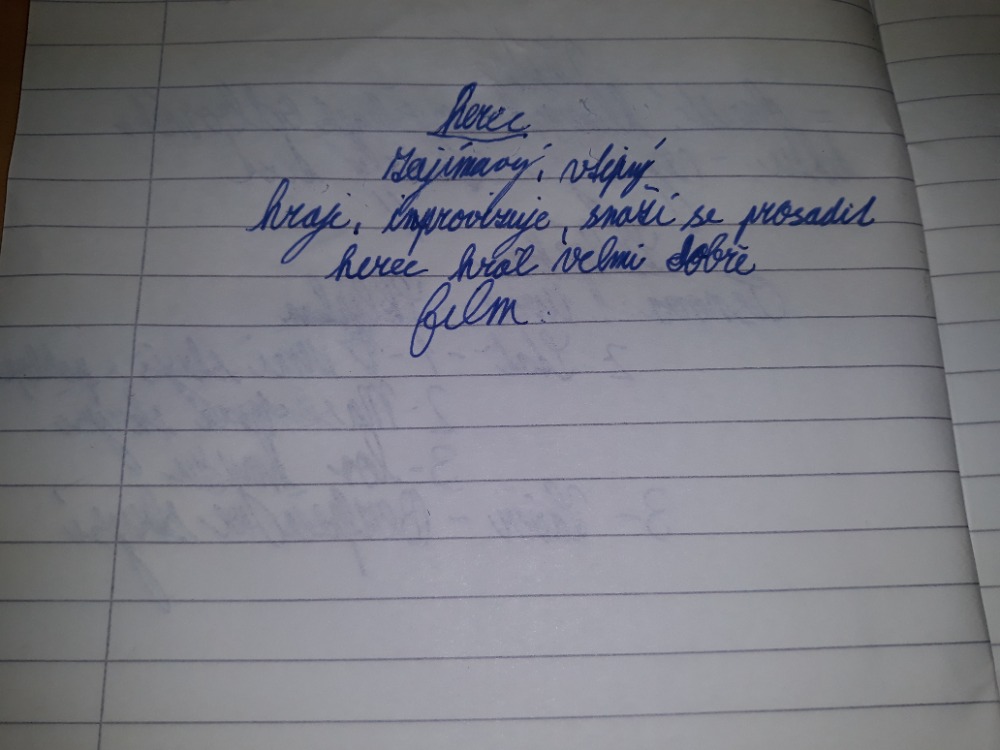 herec
zajímavý, vtipný
hraje, improvizuje, snaží se prosadit
herec hrál velmi dobře
film